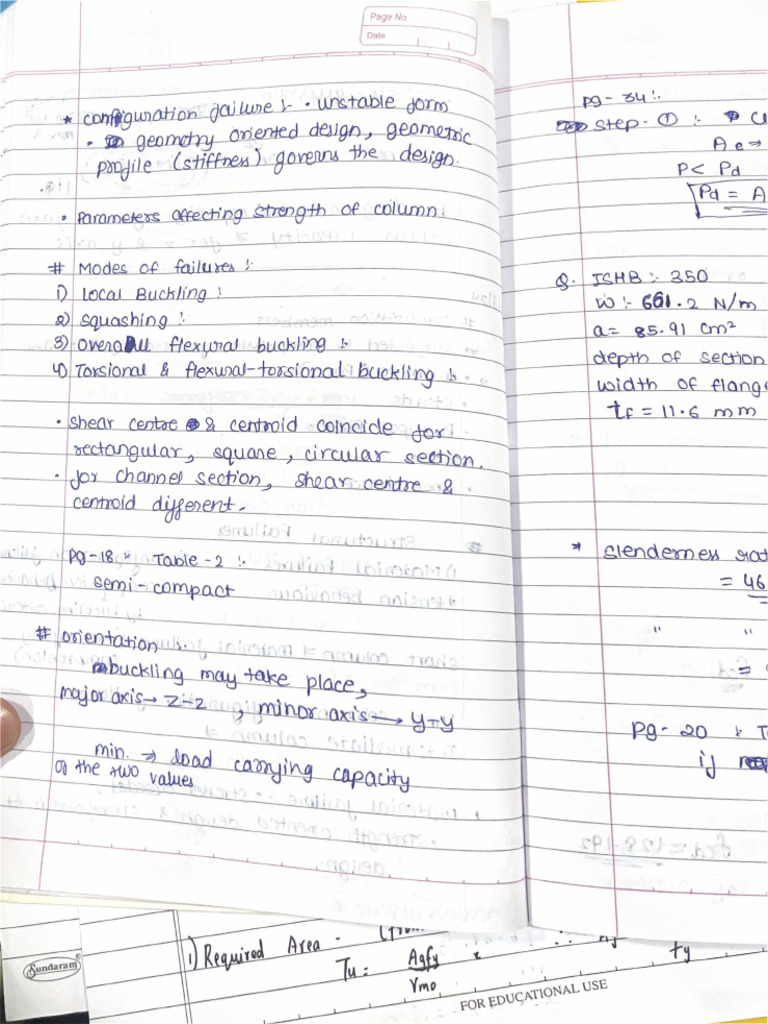 Page No.
Date
* configuration failure :- • unstable form
• geometry oriented design, geometric
profile (stiffness) governs the design.
• Parameters affecting strength of column:
# Modes of failures :-
1) Local Buckling :
2) Squashing :-
3) Overall flexural buckling :-
4) Torsional & flexural-torsional buckling :-
• shear centre & centroid coincide for
rectangular, square, circular section.
• for channel section, shear centre &
centroid different.
Pg-18 * Table-2 :-
semi-compact
# orientation :-
buckling may take place,
major axis → z-z , minor axis → y-y
min. ⇒ load carrying capacity
of the two values
Pg-34 :-
Step-① :-
Ae ⇒
P < Pd
Pd = A
Q. ISHB :- 350
w :- 661.2 N/m
a = 85.91 cm²
depth of section
width of flange
tf = 11.6 mm
* Slenderness
= 46
" "
=
Pg-20 *
if
Sundaram
1) Required Area -
Tu = Agfy
γmo
fy
FOR EDUCATIONAL USE